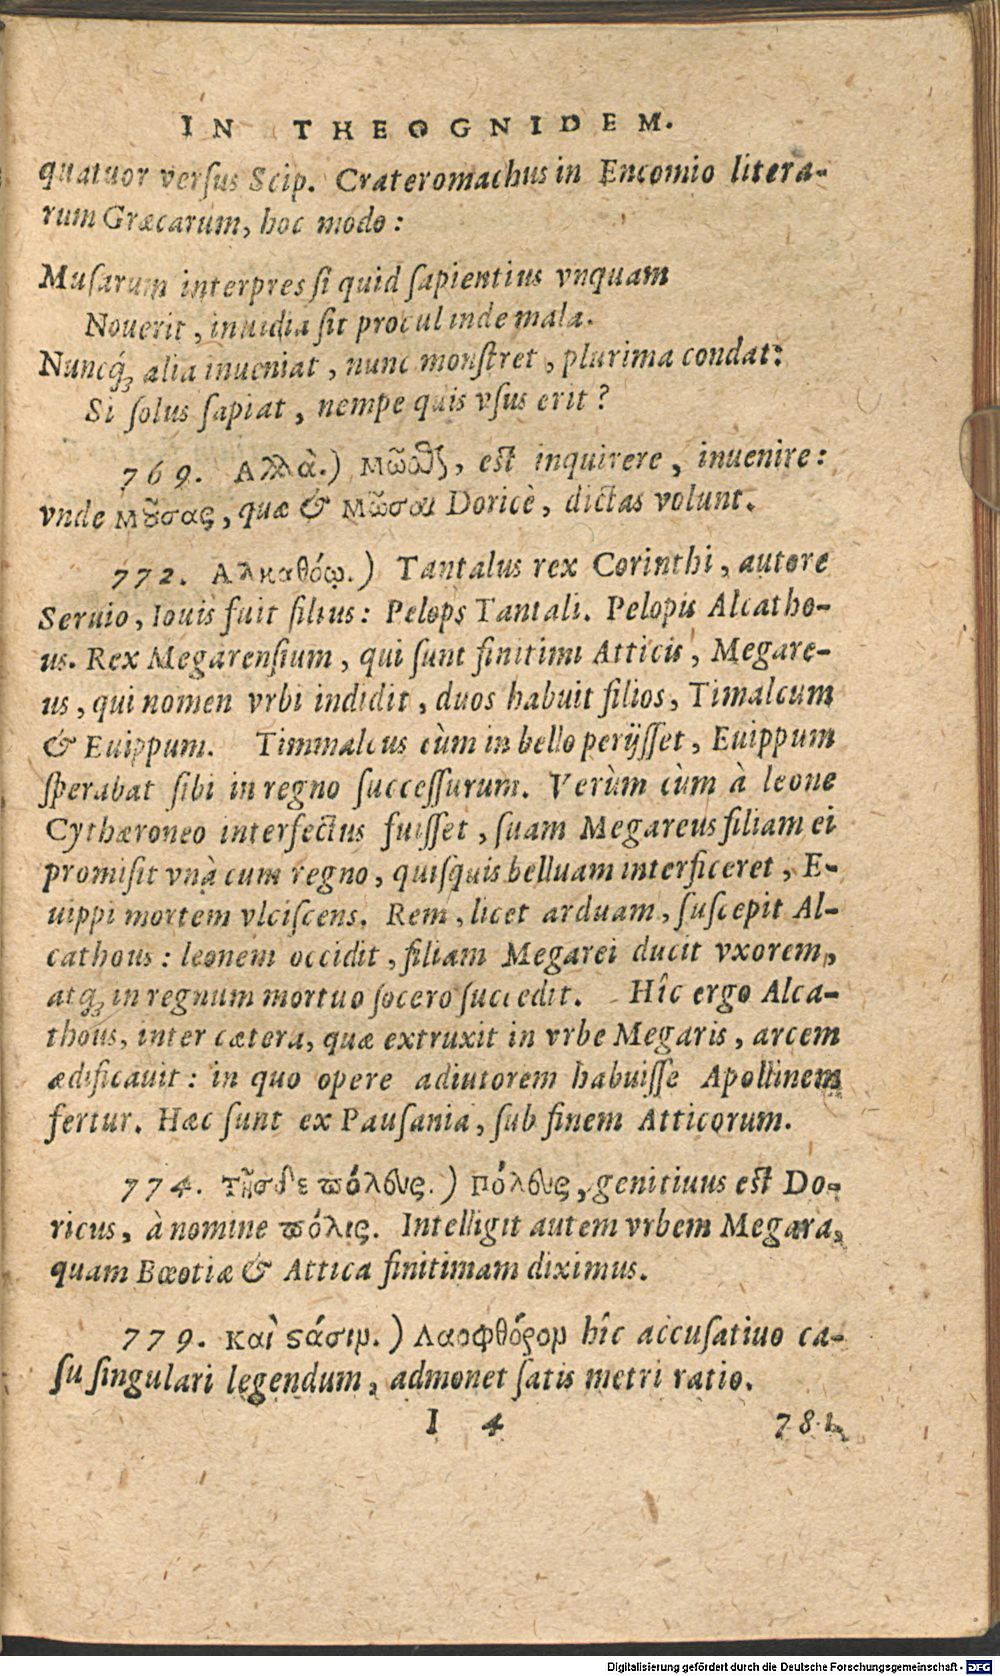 IN THEOGNIDEM.
quatuor verſus Scip. Crateromachus in Encomio litera-
rum Græcarum, hoc modo:
Muſarum interpres ſi quid ſapientius vnquam
Nouerit, inuidia ſit procul inde mala.
Nuncq́ꝫ alia inueniat, nunc monſtret, plurima condat:
Si ſolus ſapiat, nempe quis vſus erit?
769. Αλλὰ.) Μῶσθαι, est inquirere, inuenire:
vnde Μȣ͂σας, quæ & Μῶσαι Doricè, dictas volunt.
772. Αλκαθόῳ.) Tantalus rex Corinthi, autore
Seruio, Iouis fuit filius: Pelops Tantali. Pelopis Alcatho-
us. Rex Megarenſium, qui ſunt finitimi Atticis, Megare-
us, qui nomen vrbi indidit, duos habuit filios, Timalcum
& Euippum. Timmalcus cùm in bello perijſſet, Euippum
ſperabat ſibi in regno ſucceſſurum. Verùm cùm à leone
Cythæroneo interfectus fuiſſet, ſuam Megareus filiam ei
promiſit vnà cum regno, quiſquis belluam interficeret, E-
uippi mortem vlciſcens. Rem, licet arduam, ſuſcepit Al-
cathous: leonem occidit, filiam Megarei ducit vxorem,
atqꝫ in regnum mortuo ſocero ſuccedit. Hîc ergo Alca-
thous, inter cætera, quæ extruxit in vrbe Megaris, arcem
ædificauit: in quo opere adiutorem habuiſſe Apollinem
fertur. Hæc ſunt ex Pauſania, ſub finem Atticorum.
774. Τῆσδε πόλευς.) Πόλευς, genitiuus est Do-
ricus, à nomine πόλις. Intelligit autem vrbem Megara,
quam Bœotiæ & Attica finitimam diximus.
779. Καὶ ϛάσιν.) Λαοφθόρον hîc accuſatiuo ca-
ſu ſingulari legendum, admonet ſatis metri ratio.
I 4 781.
Digitalisierung gefördert durch die Deutsche Forschungsgemeinschaft - DFG